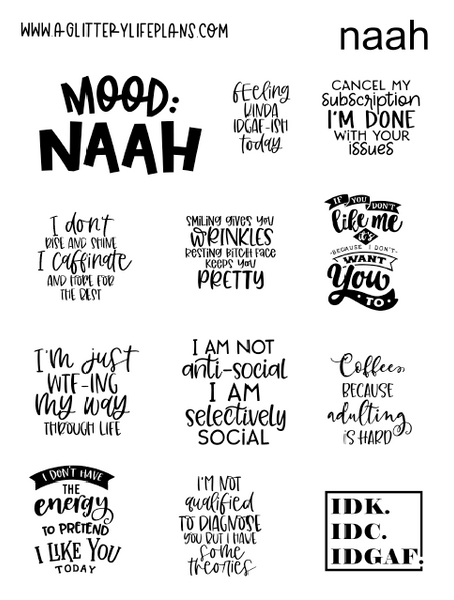 WWW.AGLITTERYLIFEPLANS.COM
naah
MOOD:
NAAH
feeling
KINDA
IDGAF-ISH
today.
CANCEL MY
subscription
I'M DONE
WITH YOUR
issues
I don't
RISE AND SHINE
I caffinate
AND HOPE FOR
THE BEST
SMILING GIVES YOU
WRINKLES
RESTING BITCH FACE
KEEPS YOU
PRETTY
IF YOU DON'T
like me
it's
BECAUSE I DON'T
WANT
You
TO
I'm just
WTF-ING
my way
THROUGH LIFE
I AM NOT
anti-social
I AM
selectively
SOCIAL
Coffee,
BECAUSE
adulting
IS HARD
I DON'T HAVE
THE
energy
TO PRETEND
I LIKE YOU
TODAY
I'M NOT
qualified
TO DIAGNOSE
YOU BUT I HAVE
some
theories
IDK.
IDC.
IDGAF.